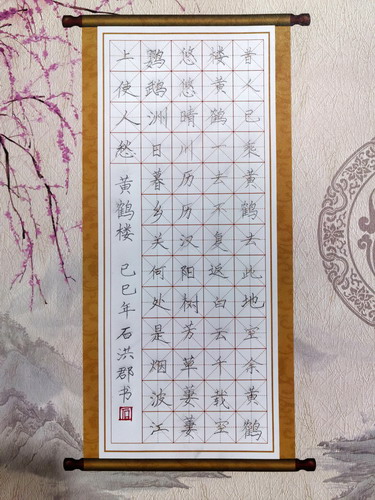 昔人已乘黄鹤去此地空余黄鹤
楼黄鹤一去不复返白云千载空
悠悠晴川历历汉阳树芳草萋萋
鹦鹉洲日暮乡关何处是烟波江
上使人愁 黄鹤楼 己巳年石洪郡书